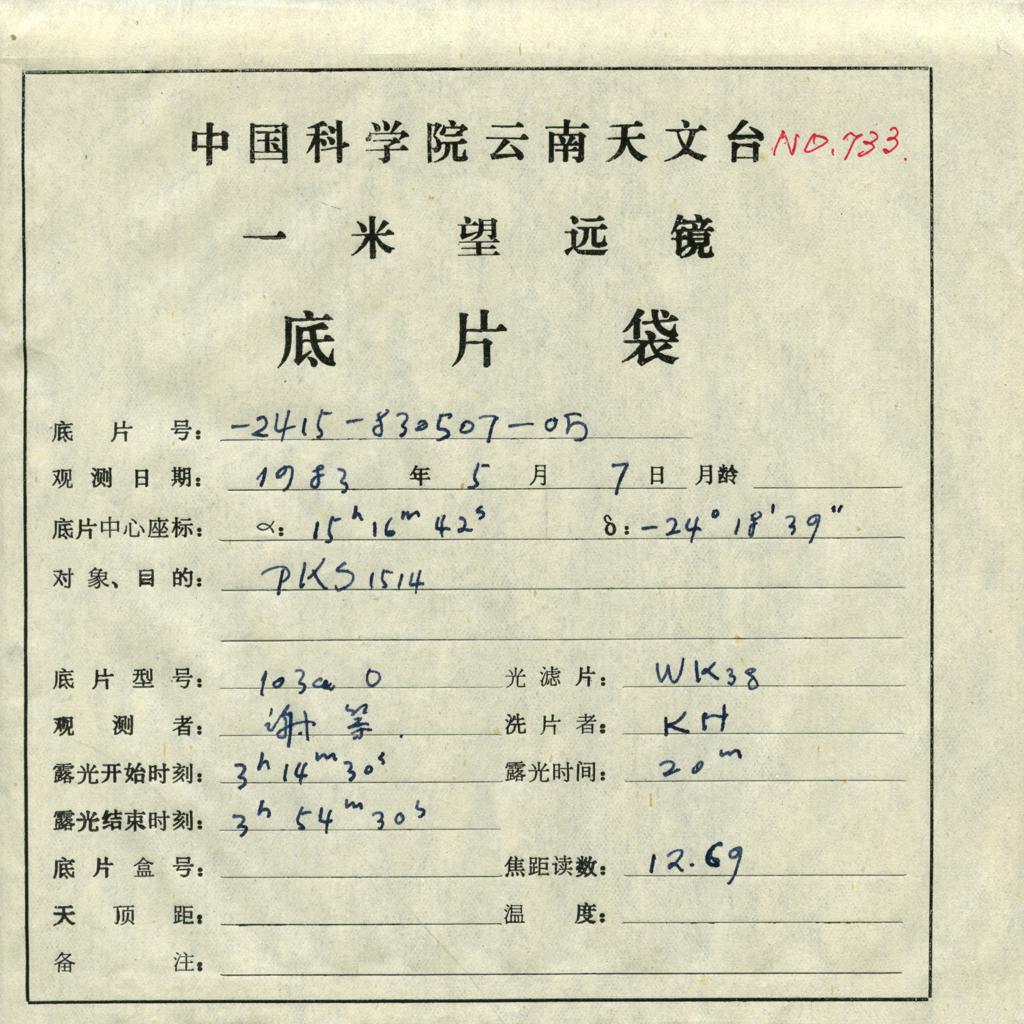 中国科学院云南天文台 NO.733.
一米望远镜
底片袋
底片号： -2415-830507-05
观测日期： 1983 年 5 月 7 日 月龄
底片中心座标： α: 15h 16m 42s δ: -24° 18' 39"
对象、目的： PKS 1514
底片型号： 103a O 光滤片： WK38
观测者： 谢 等. 洗片者： KH
露光开始时刻： 3h 14m 30s 露光时间： 20m
露光结束时刻： 3h 54m 30s
底片盒号： 焦距读数： 12.69
天顶距： 温度：
备注：